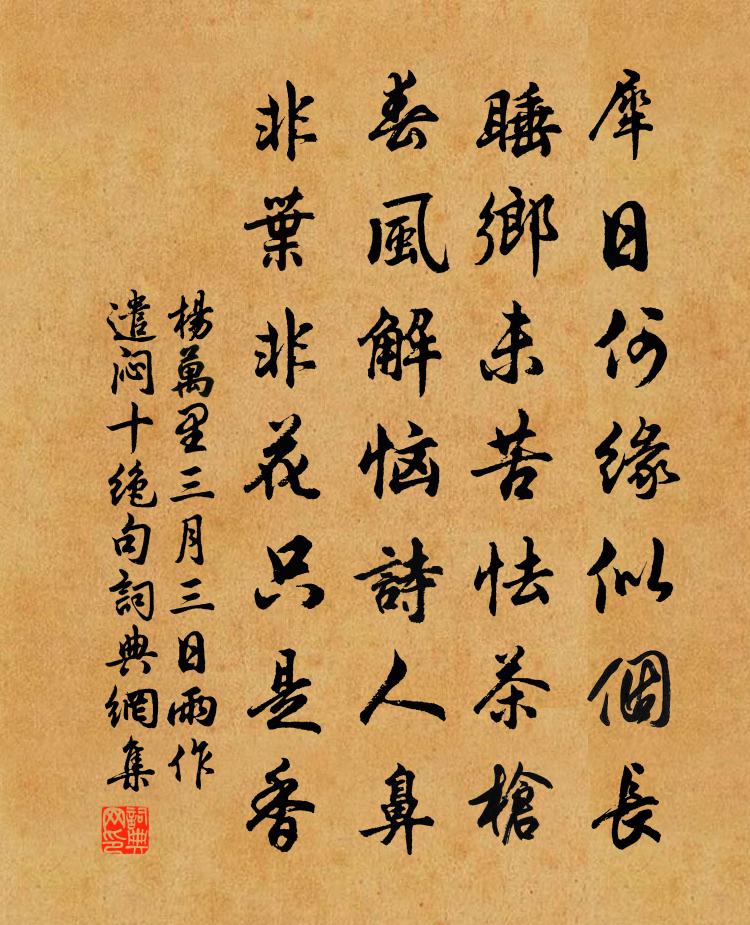 犀日何緣似個長
睡鄉未苦怯茶槍
春風解恼詩人鼻
非葉非花只是香
楊萬里三月三日雨作
遣闷十絕句詞典網集
詞典
网印